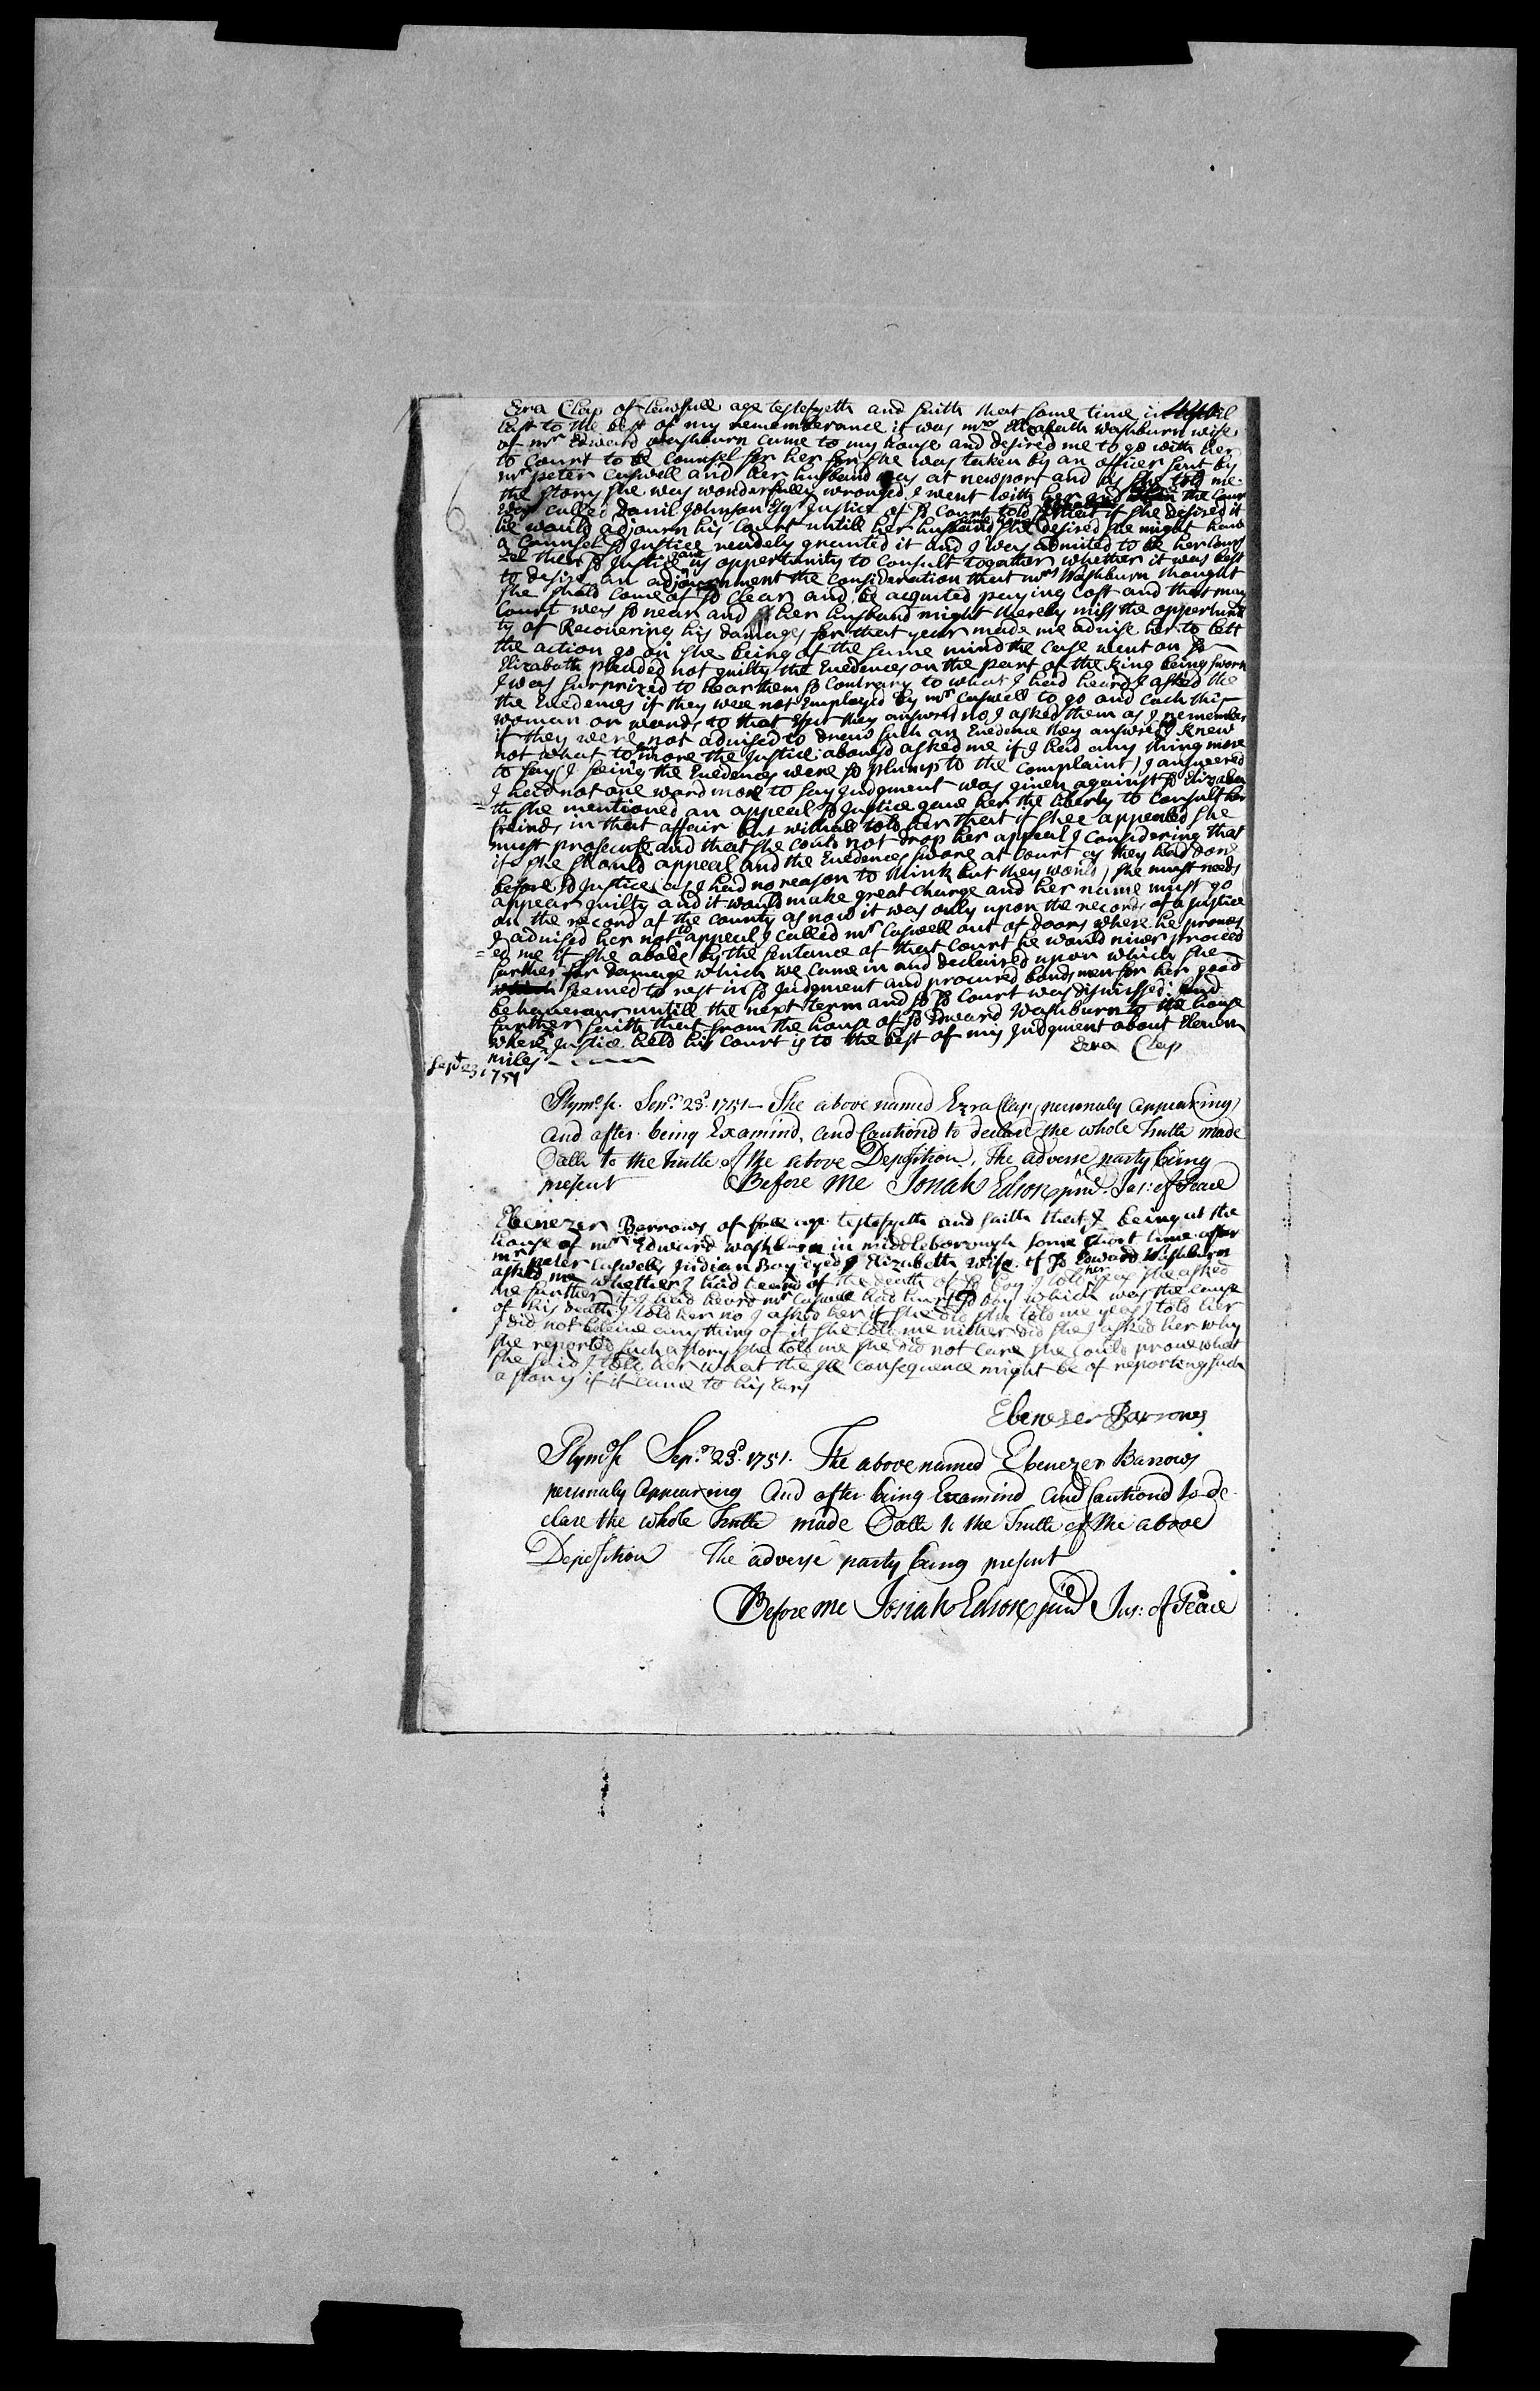 Ezra Clap of lawfull age testefyeth and saith that some time in April
last to the best of my rememberance it was mrs Elizabeth Washburn wife
of mr Edward washburn came to my house and desired me to go with her
to Court to be Counsel for her for she was taken by an officer sent by
mr peter Caswell and her husband was at newport and as she told me
the story she was wonderfully wronged I went with her and the Court
was called Danil Johnson Esq Justice of sd Court told that if she desired it
he would adjourn his Court untill her husband she desired she might have
a Counsel sd Justice readely granted it and I was admited to be her Coun
-sel then sd Justice gave us opportunity to Consult together whether it was best
to desire an adjournment the consideration that mrs Washburn thought
she should come of so clear and be acquited paying Cost and that may
Court was so near and her husband might thereby miss the oppertuni
ty of Recovering his damages for that year made me advise her to lett
the action go on she being of the same mind the case went on sd
Elizabeth pleaded not guilty the Evedences on the part of the King being sworn
I was surprized to hear them so Contrary to what I had heard I asked the
the Evedences if they were not Employed by mr Caswell to go and Catch this
woman or words to that effect they answerd no I asked them as I remember
if they were not advised to draw such an Evedence they answred I knew
not what to more the Justice aboved asked me if I had any thing more
to say I seing the Evedences were so plump to the Complaint I answered
I had not one word more to say Judgment was given against sd Elizabe
=th she mentioned an appeal sd Justice gave her the liberty to Consult her
freinds in that affair but withall told her that if shee appealed she
must prosecute and that she could not drop her appeal I Considering that
if she should appeal and the Evedences swore at Court as they had done
before sd Justice (as I had no reason to think but they would) she must needs
appear guilty and it would make great Charge and her name must go
on the record of the County as now it was only upon the records of a Justice
I advised her not to appeal I called mr Caswell out of doors where he promis
=ed me if she abode by the sentance of that Court he would niver proceed
further for damage which we came in and declaired upon which she
seemed to rest in sd Judgment and procured bondsmen for her good
behaveour untill the next term and so sd Court was dismissed: and
further saith that from the house of sd Edward Washburn to the house
where Justice held his Court is to the best of my Judgment about Eleven
miles
Ezra Clap
Sept 23 1751
Plymo. Sc. Sepr. 23d. 1751 — The above named Ezra Clap personaly appearing
and after being Examind, and Cautiond to declare the whole Truth made
Oath to the truth of the above Deposition, The adverse party being
present Before me Josiah Edson junr Jus: of Peace
Ebenezer Barrows of full age testefyeth and saith that I being at the
house of mr Edward washburn in middleborough some short time after
mr peter Caswells Indian Boy dyed Elizabeth wife of sd Edward Washburn
asked me whether I had heard of the death of sd boy I told her yes she asked
me further if I had heard mr Caswell had hurt sd boy which was the cause
of his death I told her no I asked her if she did she told me yeas I told her
I did not beleive anything of it she told me nither did she I asked her why
she reported such a story she told me she did not Care she could prove what
she said I told her what the Ill consequence might be of reporting such
a story if it came to his Ears
Ebenezer Barrows
Plymo Sc Sepr. 23d. 1751. The above named Ebenezer Barrows
personaly appearing And after being Examind and Cautiond to de
clare the whole Truth made Oath to the Truth of the above
Deposition The adverse party being present
Before me Josiah Edson junr Jus: of Peace